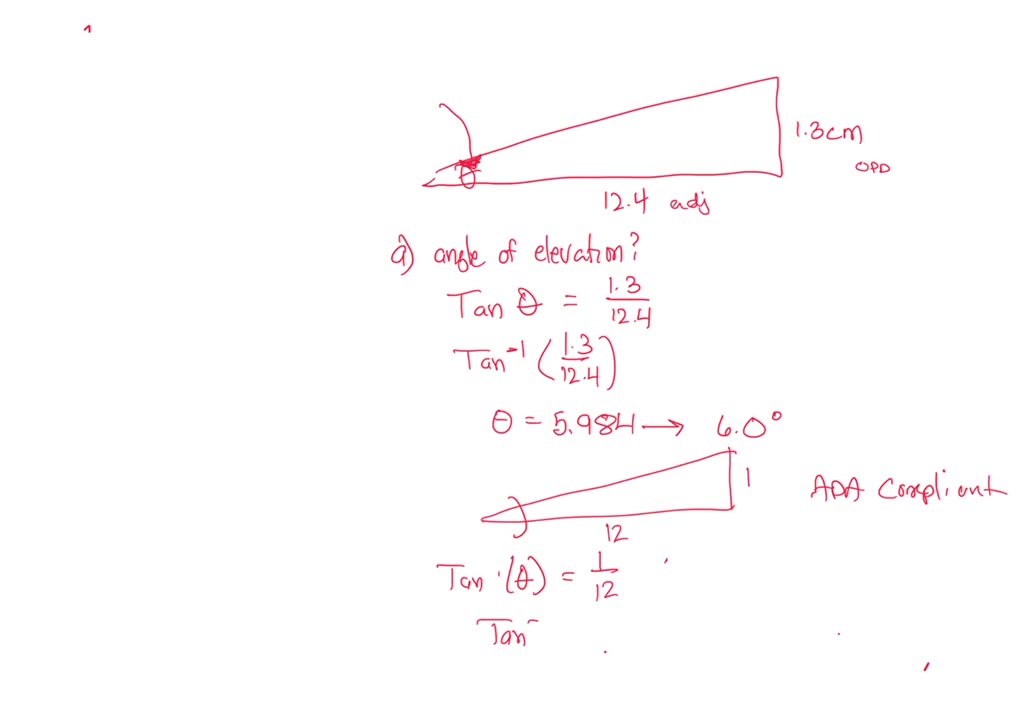 1.3cm
OPD
θ
12.4 adj
a) angle of elevation?
Tan θ = 1.3/12.4
Tan⁻¹ (1.3/12.4)
θ = 5.984 → 6.0°
1
ADA Compliant
12
Tan (θ) = 1/12
Tan⁻